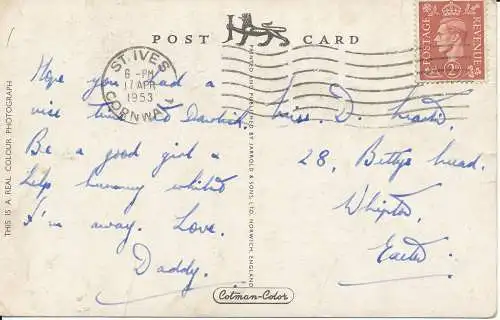 POST CARD
ST. IVES
6 - PM
17 APR
1953
CORNWALL
POSTAGE REVENUE
2D
Hope you had a
nice time at Dawlish.
Be a good girl &
help mummy whilst
I'm away. Love.
Daddy.
Miss. D.
28,
Whipton,
Exeter.
THIS IS A REAL COLOUR PHOTOGRAPH
PRINTED AND PUBLISHED BY JARROLD & SONS, LTD. NORWICH, ENGLAND
Cotman-Color